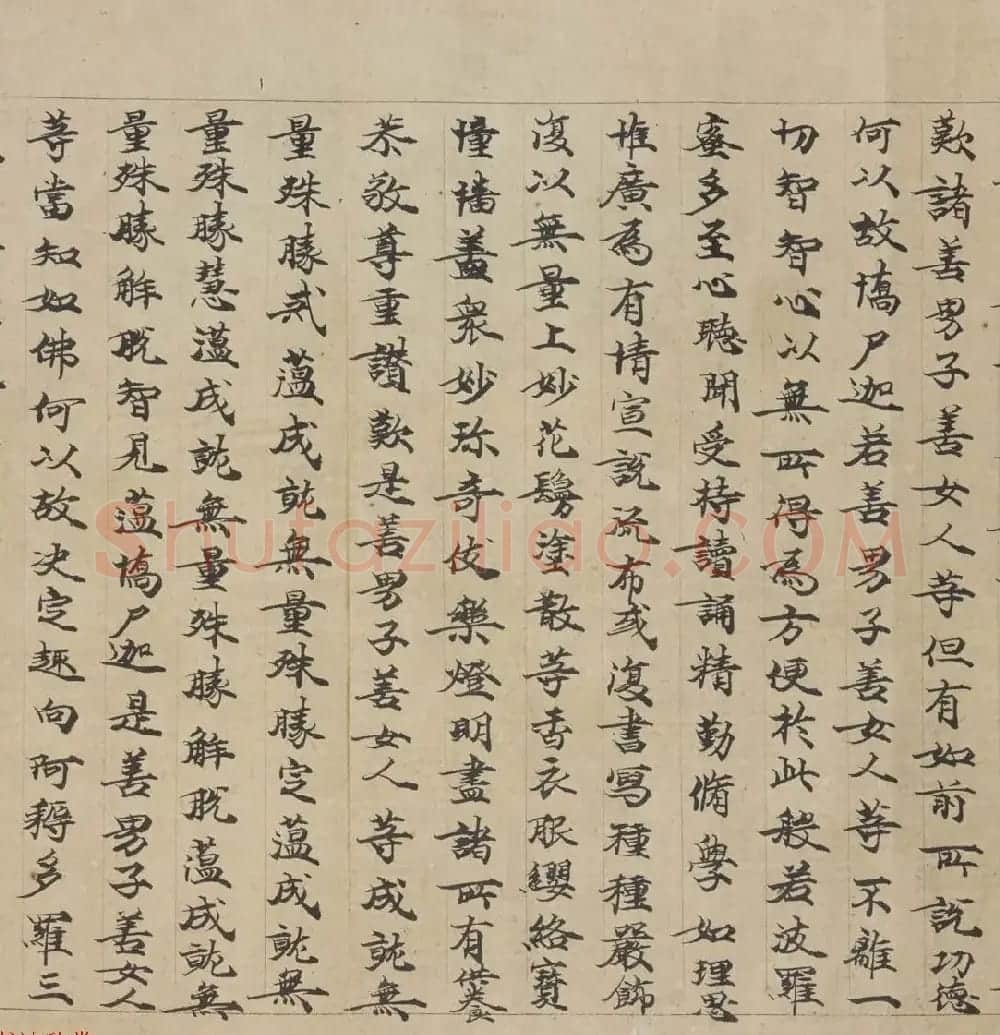 歎諸善男子善女人等但有如前所說功德
何以故憍尸迦若善男子善女人等不離一
切智智心以無所得為方便於此般若波羅
蜜多至心聽聞受持讀誦精勤脩學如理思
惟廣為有情宣說流布或復書寫種種嚴飾
復以無量上妙花鬘塗散等香衣服纓絡寶
幢幡蓋衆妙珍奇伎樂燈明盡諸所有供養
恭敬尊重讚歎是善男子善女人等成就無
量殊勝戒蘊成就無量殊勝定蘊成就無
量殊勝慧蘊成就無量殊勝解脫蘊成就無
量殊勝解脫智見蘊憍尸迦是善男子善女人
等當知如佛何以故决定趣向阿耨多羅三
Shufaziliao.COM